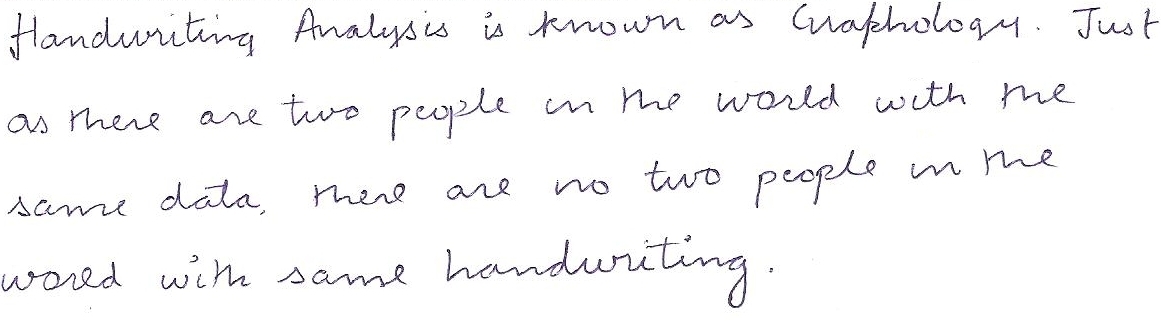 Handwriting Analysis is known as Graphology. Just
as there are two people in the world with the
same data, there are no two people in the
world with same handwriting.